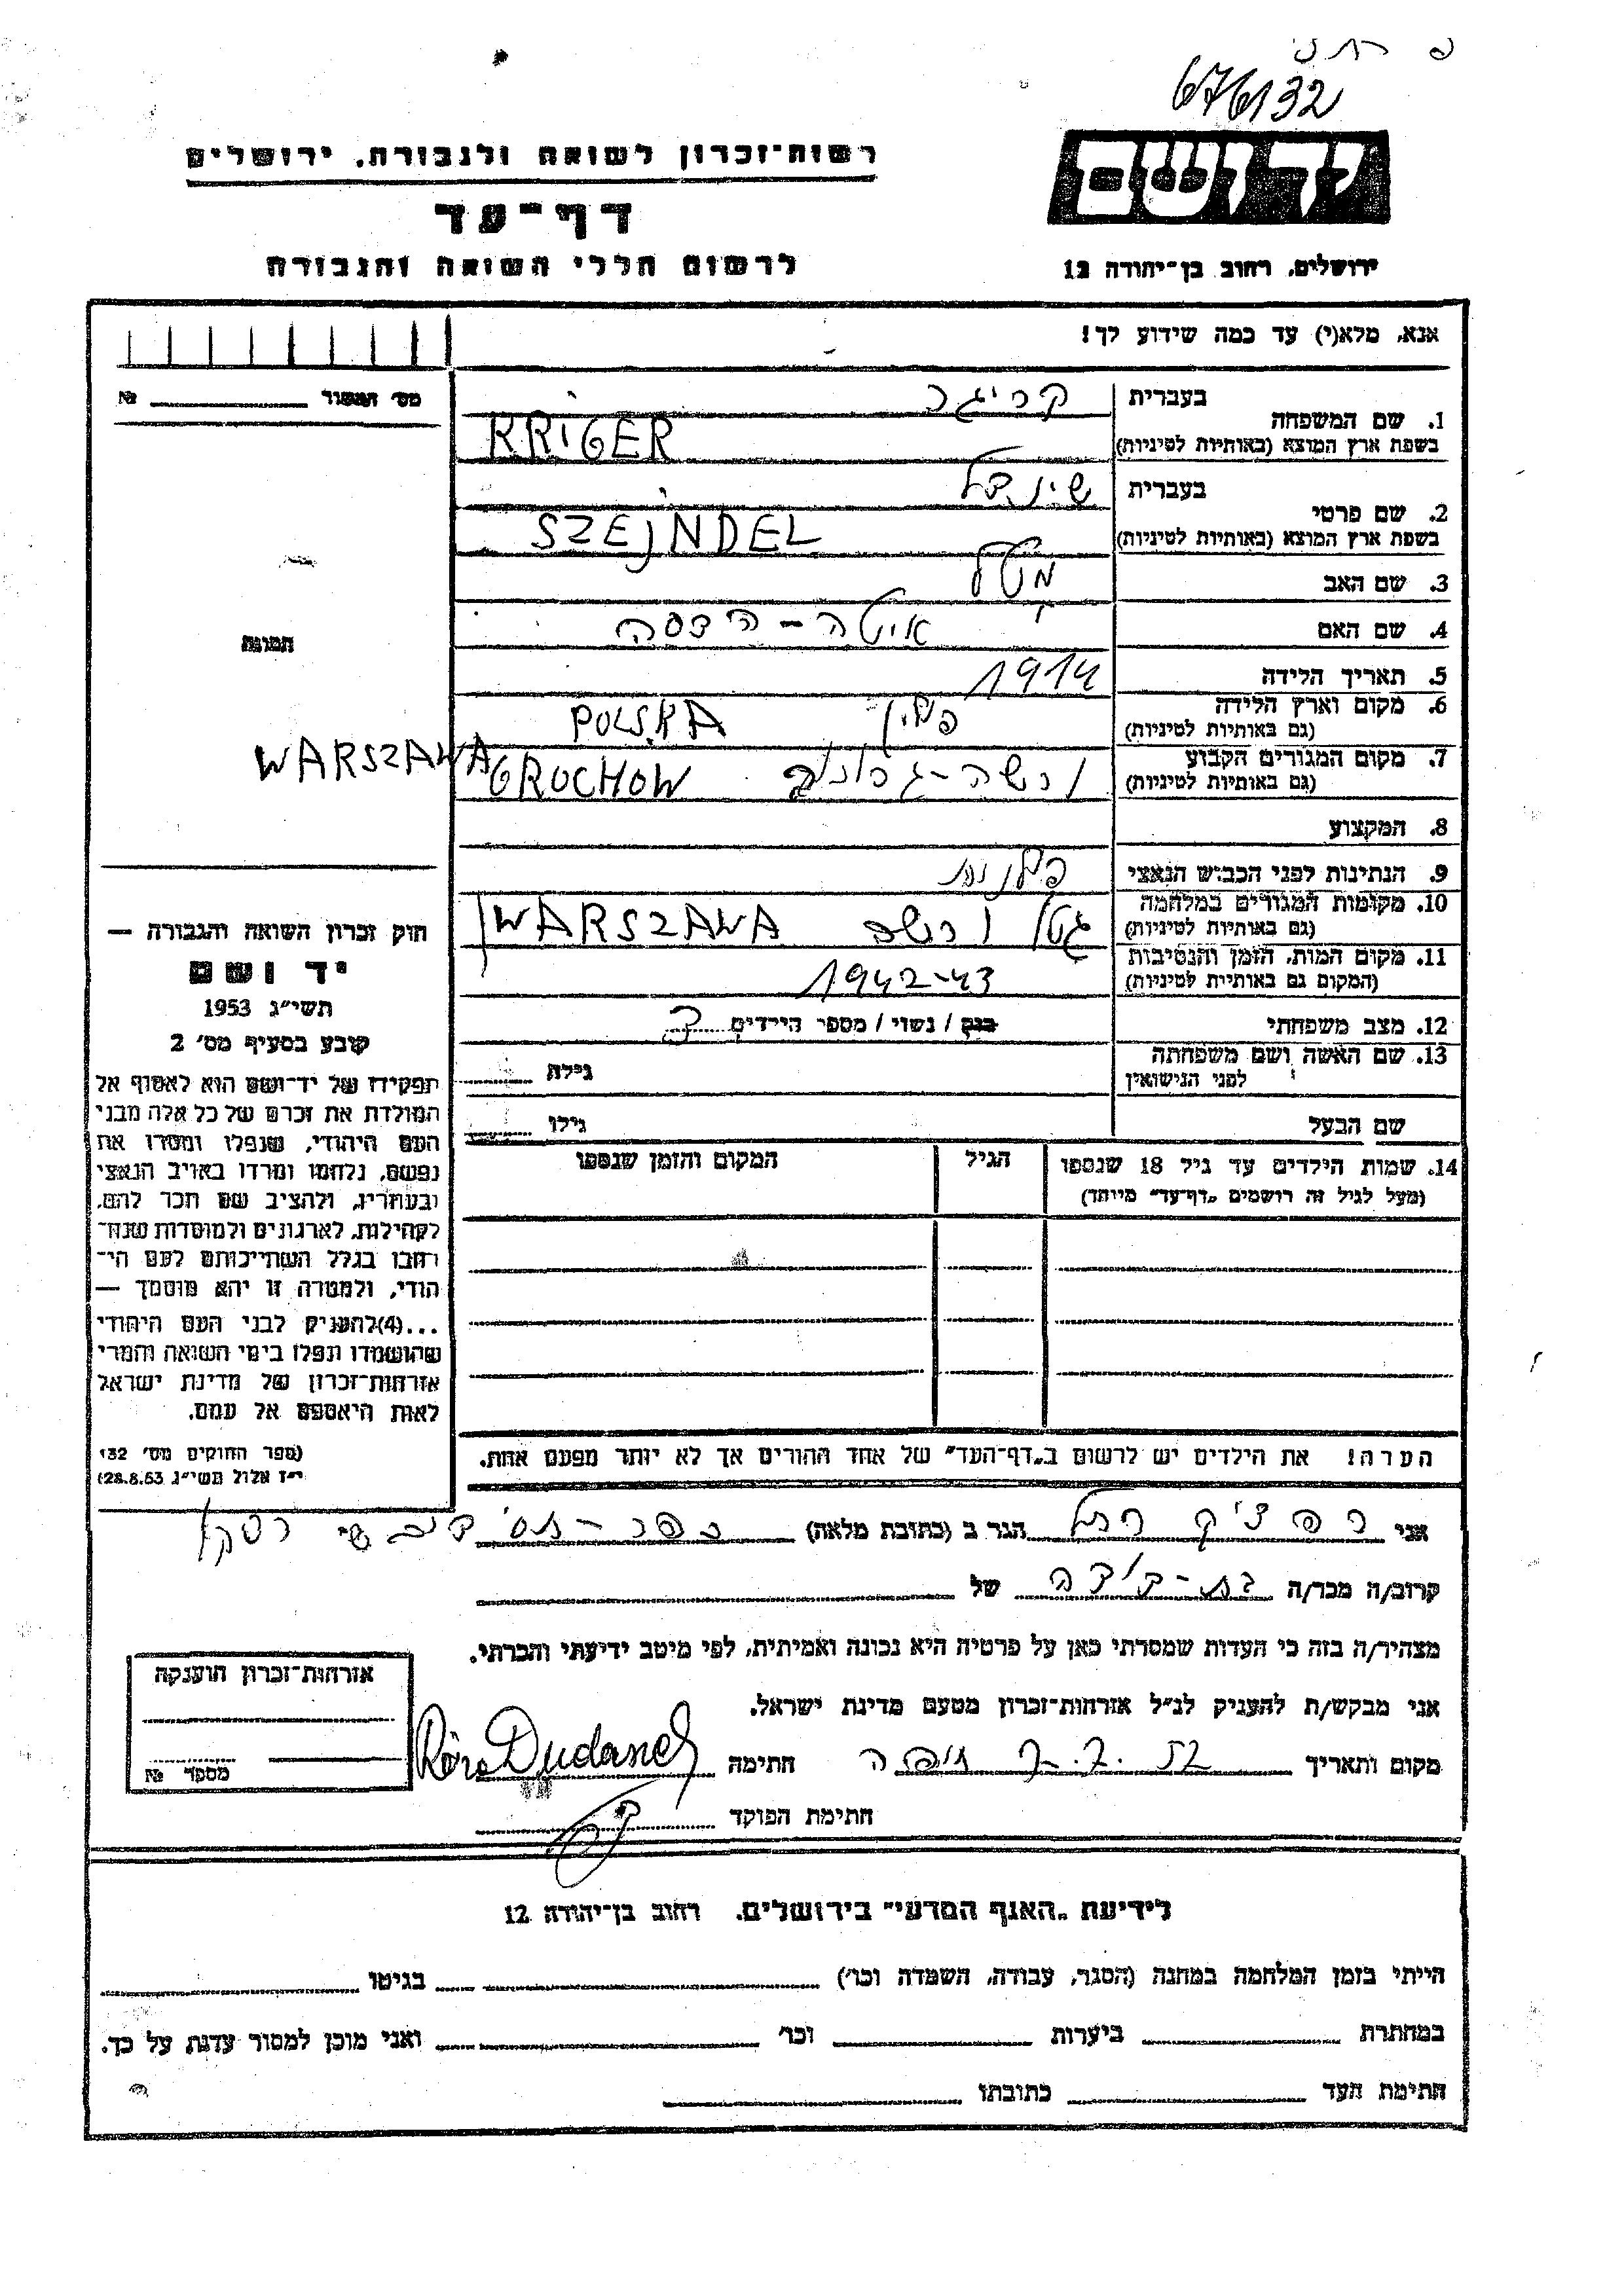 676132
רשות-זכרון לשואה ולגבורה, ירושלים
יד ושם
דף-עד
לרשום חללי השואה והגבורה
ירושלים, רחוב בן-יהודה 12
אנא, מלא(י) עד כמה שידוע לך!
מס' המשור № ________
1. שם המשפחה בעברית קריגר
בשפת ארץ המוצא (באותיות לטיניות) KRIGER
2. שם פרטי בעברית שיינדל
בשפת ארץ המוצא (באותיות לטיניות) SZEJNDEL
3. שם האב
4. שם האם איטה - הדסה
תמונה
5. תאריך הלידה 1914
6. מקום וארץ הלידה (גם באותיות לטיניות) פולין POLSKA
7. מקום המגורים הקבוע (גם באותיות לטיניות) ורשה-גרוכוב GROCHOW WARSZAWA
8. המקצוע
9. הנתינות לפני הכבוש הנאצי פולנית
10. מקומות המגורים במלחמה (גם באותיות לטיניות) גטו ורשה WARSZAWA
11. מקום המות, הזמן והנסיבות (המקום גם באותיות לטיניות) 1942-43
12. מצב משפחתי רווק / נשוי / מספר הילדים
13. שם האשה ושם משפחתה לפני הנישואין גילה
שם הבעל גילו
14. שמות הילדים עד גיל 18 שנספו (מעל לגיל זה רושמים "דף-עד" מיוחד) הגיל המקום והזמן שנספו
הערה! את הילדים יש לרשום ב"דף-העד" של אחד ההורים אך לא יותר מפעם אחת.
חוק זכרון השואה והגבורה —
יד ושם
תשי"ג 1953
קובע בסעיף מס' 2
תפקידו של יד-ושם הוא לאסוף אל
המולדת את זכרם של כל אלה מבני
העם היהודי, שנפלו ומסרו את
נפשם, נלחמו ומרדו באויב הנאצי
ובעוזריו, ולהציב שם וזכר להם,
לקהילות, לארגונים ולמוסדות שנח-
רבו בגלל השתייכותם לעם הי-
הודי, ולמטרה זו יהא מוסמך —
...(4)להעניק לבני העם היהודי
שהושמדו ונפלו בימי השואה והמרי
אזרחות-זכרון של מדינת ישראל
לאות היאספם אל עמם.
(ספר החוקים מס' 132
י"ז אלול תשי"ג 28.8.53)
אני רחל הגר ב (כתובת מלאה) כפר
קרוב/ה מכר/ה בת-דודה של
מצהיר/ה בזה כי העדות שמסרתי כאן על פרטיה היא נכונה ואמיתית, לפי מיטב ידיעתי והכרתי.
אני מבקש/ת להעניק לנ"ל אזרחות-זכרון מטעם מדינת ישראל.
מקום ותאריך חיפה חתימה
חתימת הפוקד
אזרחות-זכרון הוענקה
מספר №
לידיעת "האגף המדעי" בירושלים. רחוב בן-יהודה 12
הייתי בזמן המלחמה במחנה (הסגר, עבודה, השמדה וכו') בגיטו
במחתרת ביערות וכו' ואני מוכן למסור עדות על כך.
חתימת העד כתובתו